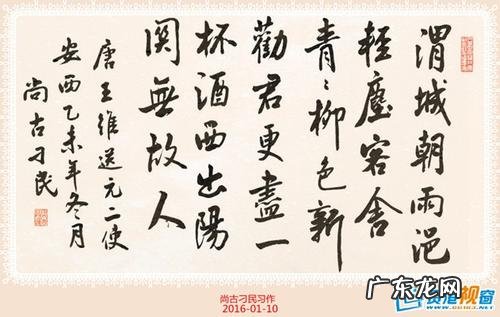 渭城朝雨浥
輕塵客舍
青〻柳色新
勸君更盡一
杯酒西出陽
関無故人
唐王維送元二使
安西乙未年冬月
尚古刁民
尚古刁民习作
2016-01-10
广东龙网